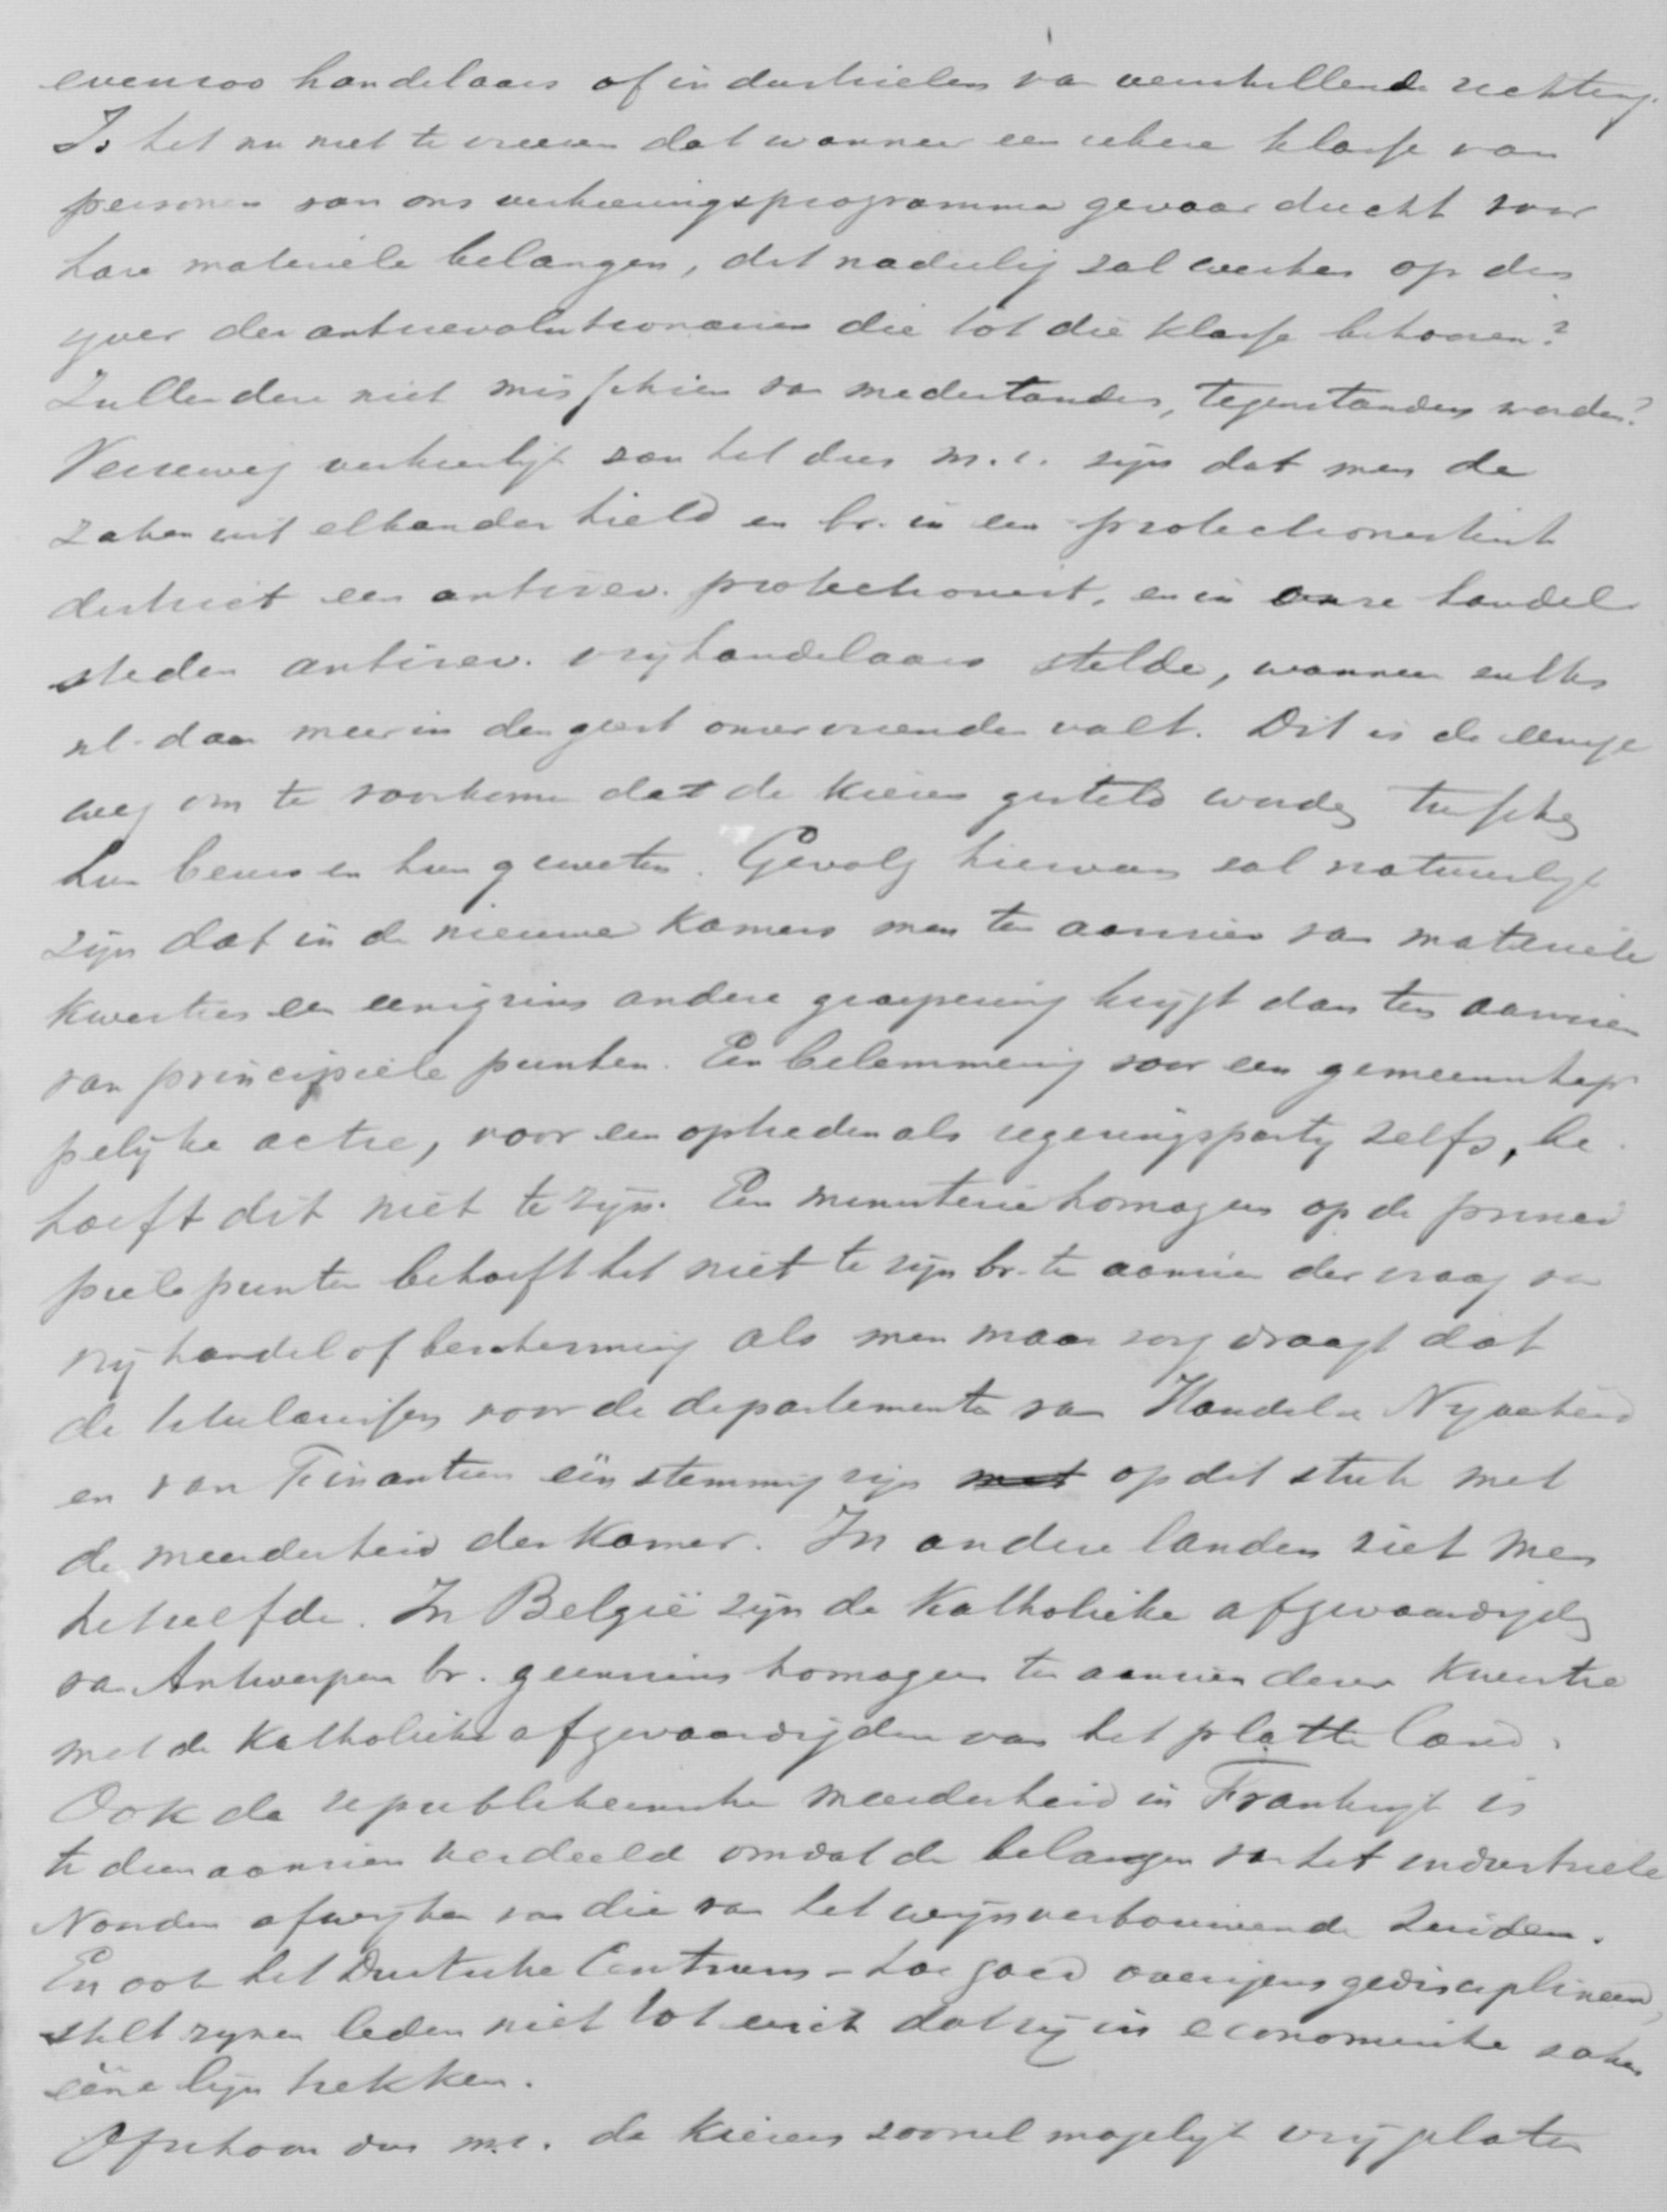 evenzoo handelaars of industrieelen van verschillende richting.
Is het nu niet te vreezen dat wanneer een zekere klasse van
personen van ons verkiezingsprogramma gevaar ducht voor
hare materiële belangen, dit nadeelig zal werken op den
yver der antirevolutionairen die tot die klasse behooren?
Zullen deze niet misschien van medestanders, tegenstanders worden?
Verreweg verkieslijk zou het dus m.i. zijn dat men de
zaken uit elkander hield en bv. in een protectionistisch
district een antirev. protectionist, en in onze handel
steden antirev. vrijhandelaars stelde, wanneer zulks
nl. daar meer in den geest onzer vrienden valt. Dit is de eenige
weg om te voorkomen dat de kiezers gesteld worden tusschen
hun beurs en hun geweten. Gevolg hiervan zal natuurlijk
zijn dat in de nieuwe Kamers men ten aanzien van materiële
kwesties een eenigzins andere groepeering krijgt dan ten aanzien
van principiële punten. Een belemmering voor een gemeenschap
pelijke actie, voor een optreden als regeringsparty zelfs, be
hoeft dit niet te zijn. Een ministerie homogeen op de princi
piële punten behoeft het niet te zijn bv. ten aanzien der vraag van
vrijhandel of bescherming als men maar zorg draagt dat
de titularissen voor de departementen van Handel en Nijverheid
en van Financiën eenstemmig zijn op dit stuk met
de meerderheid der Kamer. In andere landen ziet men
hetzelfde. In België zijn de Katholieke afgevaardigden
van Antwerpen bv. geenszins homogeen ten aanzien dezer kwestie
met de Katholieke afgevaardigden van het platte land.
Ook de republikeinsche meerderheid in Frankrijk is
te dien aanzien verdeeld omdat de belangen van het industriele
Noorden afwijken van die van het wijnverbouwende Zuiden.
En ook het Duitsche Centrum – hoe goed overigens gedisciplineerd,
stelt zijnen leden niet tot eisch dat zij in economische zaken
eéne lijn trekken.
Ofschoon dus m.i. de kiezers zooveel mogelijk vrij gelaten